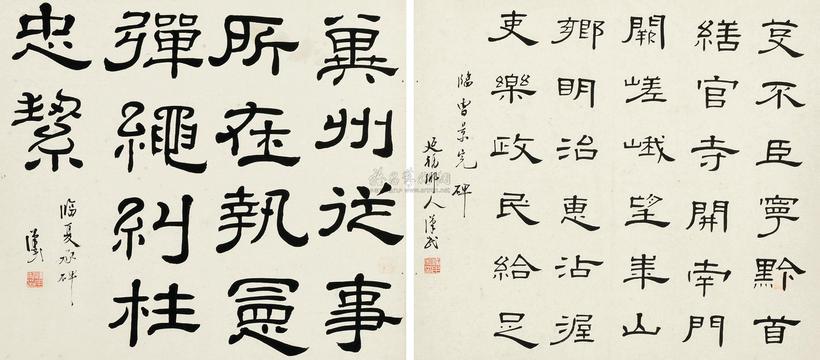 芟不臣寧黔首
繕官寺開南門
闕嵯峨望華山
鄉明治惠沾渥
吏樂政民給足
臨曹景完碑
延陵鄉人漢
冀州從事
所在執憲
彈繩糾枉
忠絜
臨夏承碑
漢